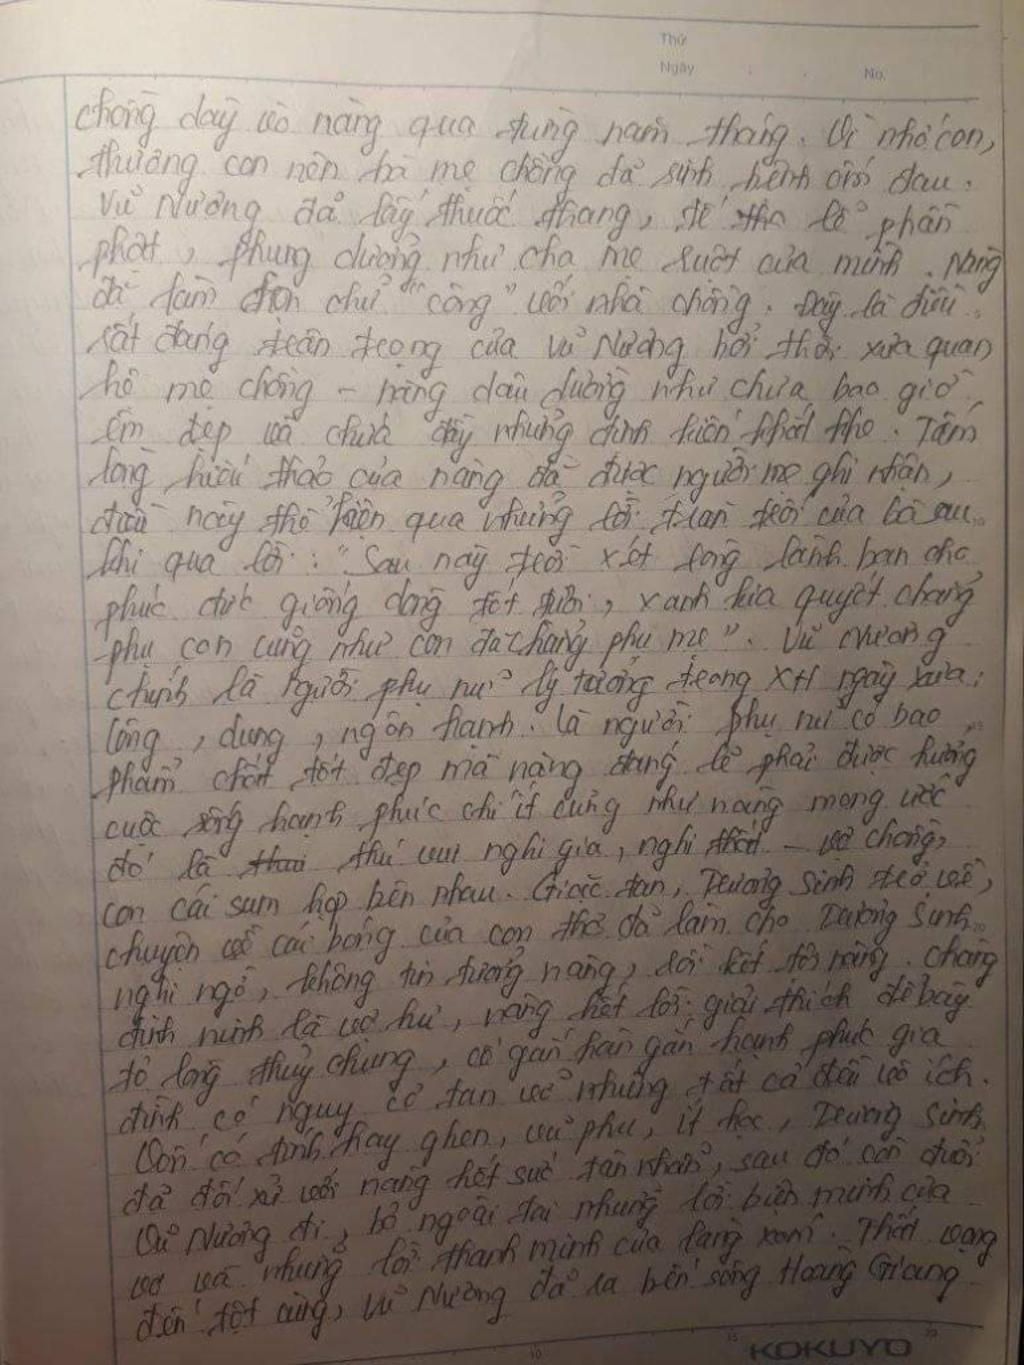 Thứ
Ngày . . No.
chồng dày vò nàng qua từng năm tháng. Vì nhớ con,
thương con nên bà mẹ chồng đã sinh bệnh ốm đau.
Vũ Nương đã lấy thuốc thang, để lễ phần
phật, phụng dưỡng như cha mẹ ruột của mình. Nàng
đã làm tròn chữ "công" với nhà chồng. Đây là điều
rất đáng trân trọng của Vũ Nương bởi thời xưa quan
hệ mẹ chồng - nàng dâu dường như chưa bao giờ
êm đẹp và chứa đầy những định kiến khắt khe. Tấm
lòng hiếu thảo của nàng đã được người mẹ ghi nhận,
điều này thể hiện qua những lời trăn trối của bà sau
khi qua lời: "Sau này trời xét lòng lành ban cho
phúc đức giống dòng tốt tươi, xanh kia quyết chẳng
phụ con cũng như con đã chẳng phụ mẹ". Vũ Nương
chính là người phụ nữ lý tưởng trong XH ngày xưa:
công, dung, ngôn hạnh. Là người phụ nữ có bao
phẩm chất tốt đẹp mà nàng đáng lẽ phải được hưởng
cuộc sống hạnh phúc chí ít cũng như nàng mong ước
đó là thú vui nghi gia, nghi thất - vợ chồng,
con cái sum họp bên nhau. Giặc tan, Trương Sinh trở về,
chuyện về cái bóng của con thơ đã làm cho Trương Sinh
nghi ngờ, không tin tưởng nàng, rồi kết tội nàng. Chàng
đinh ninh là vợ hư, nàng hết lời giải thích để bày
tỏ lòng thuỷ chung, cố gắn hàn gắn hạnh phúc gia
đình có nguy cơ tan vỡ nhưng tất cả đều vô ích.
Vốn có tính hay ghen, vũ phu, ít học, Trương Sinh
đã đối xử với nàng hết sức tàn nhẫn, sau đó còn đuổi
Vũ Nương đi, bỏ ngoài tai những lời biện minh của
vợ và những lời thanh minh của làng xóm. Thất vọng
đến tột cùng, Vũ Nương đã ra bến sông Hoàng Giang
KOKUYO